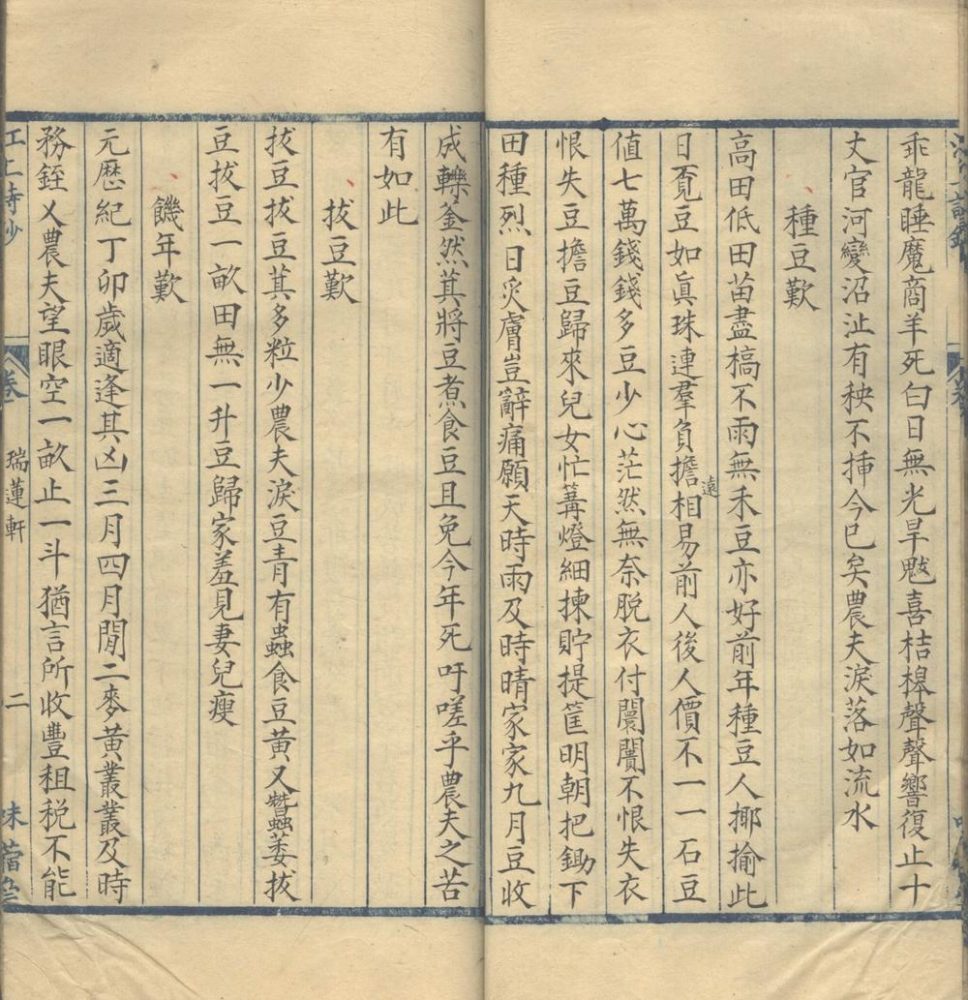 乖龍睡魔商羊死白日無光旱魃喜桔槔聲聲響復止十
丈官河變沼沚有秧不揷今已矣農夫淚落如流水
種豆歎
高田低田苗盡槁不雨無禾豆亦好前年種豆人揶揄此
日覔豆如眞珠連羣負擔遠相易前人後人價不一一石豆
値七萬錢錢多豆少心茫然無奈脱衣付闤闠不恨失衣
恨失豆擔豆歸來兒女忙篝燈細揀貯提筐明朝把鋤下
田種烈日炙膚豈辭痛願天時雨及時晴家家九月豆收
成轢釜然萁將豆煮食豆且免今年死吁嗟乎農夫之苦
有如此
拔豆歎
拔豆拔豆萁多粒少農夫淚豆青有蟲食豆黃又蠶萎拔
豆拔豆一畝田無一升豆歸家羞見妻兒瘦
饑年歎
元歷紀丁卯歲適逢其凶三月四月閒二麥黃叢叢及時
務銍乂農夫望眼空一畝止一斗猶言所收豐租税不能
江上詩鈔
卷
瑞蓮軒
二
味蕾